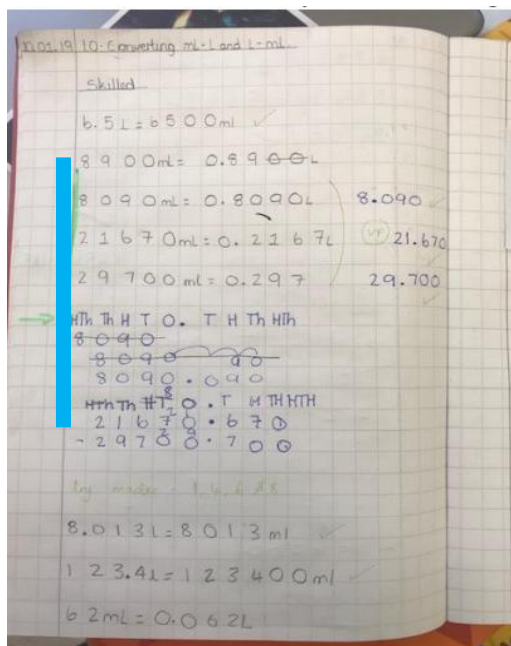 LO: Converting mL-L and L-mL
Skilled
6.5L = 6500ml ✓
8900mL = 0.8900L
8090mL = 0.8090L 8.090
21670mL = 0.2167L VF 21.670
29700ml = 0.297 29.700
HTh Th H T O. T H Th HTh
8090
8090 90
8090.090
HTh Th H T O . T H TH HTH
8.013L = 8013ml
123.4L = 123400ml
62mL = 0.062L